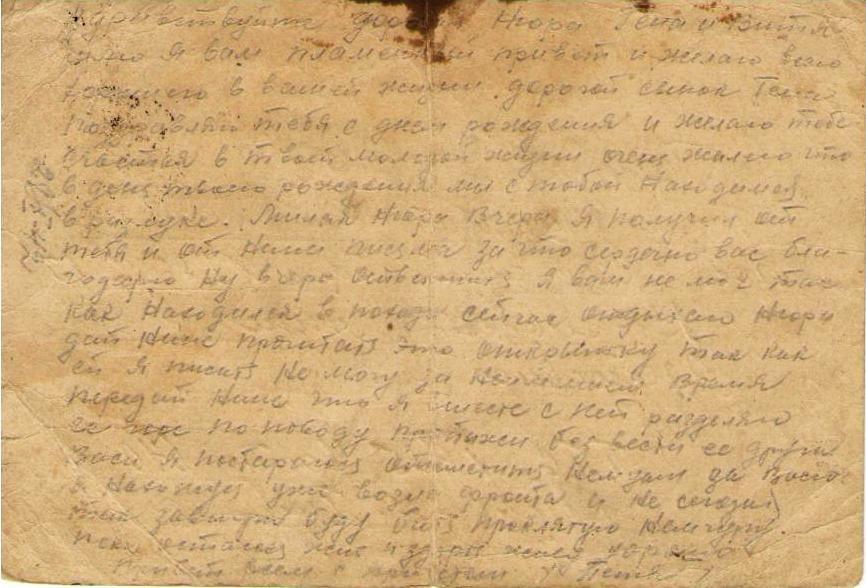 Здравствуйте дорогая Нюра Гена и Витя
шлю я вам пламенный привет и желаю всего
хорошего в вашей жизни дорогой сынок Гена
Поздравляю тебя с днем рождения и желаю тебе
счастья в твоей молодой жизни очень жалко что
в день твоего рождения мы с тобой Находимся
в разлуке. Милая Нюра Вчера Я получил от
тебя и от Нины письма за что сердечно вас бла-
годарю Ну вчера ответить Я вам не мог так
как Находился в походе сейчас отдыхаю Нюра
дай Нине прочитать эту открытку так как
ей Я писать Не могу за Неимением Время
передай Нине что я вместе с ней разделяю
ее горе по поводу пропажи без вести ее друга
Васи я постараюсь отомстить Немцам за Васю
я Нахожусь уже возле фронта и не сегодня
так завтра буду бить проклятую Немчуру.
пока остаюсь жив и здоров
Привет всем с приветом Петя